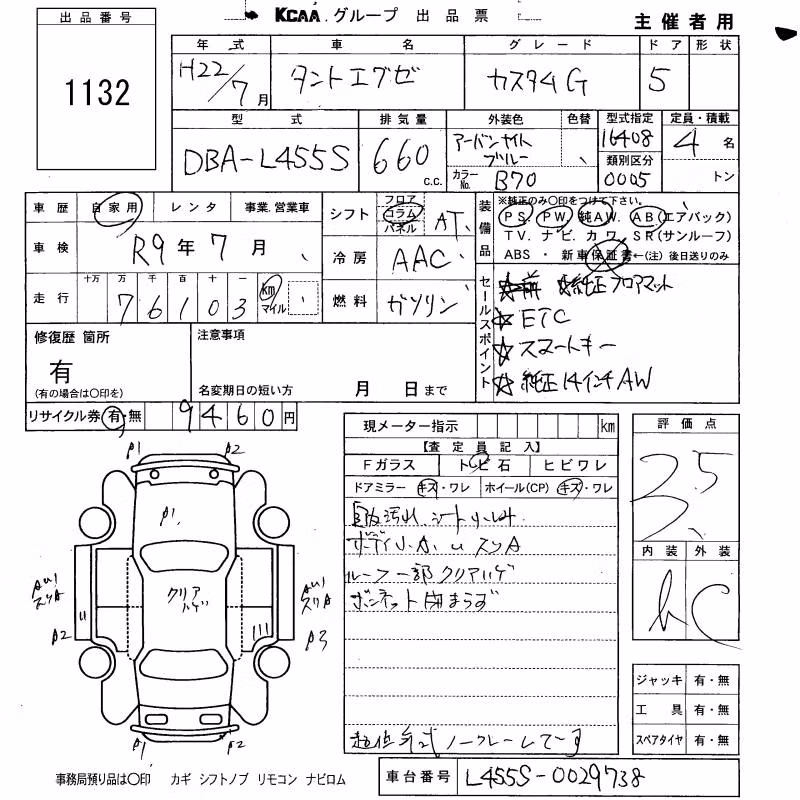 KCAA グループ 出品票
主催者用
出品番号
1132
年式 車名 グレード ドア 形状
H22/7月 タントエグゼ カスタムG 5
型式 排気量 外装色 色替 型式指定 定員・積載
DBA-L455S 660 c.c. アーバンナイトブルー 16408 4 名
カラーNo. B70 類別区分 0005 トン
車歴 自家用 レンタ 事業.営業車
シフト フロア コラム パネル AT
車検 R9年7月
冷房 AAC
走行 十万 万 千 百 十 一
76103 km マイル
燃料 ガソリン
装備品 ※純正のみ〇印をつけて下さい。
PS. PW. 純AW. AB(エアバック)
TV. ナビ. カワ. SR(サンルーフ)
ABS ・ 新車保証書←(注)後日送りのみ
セールスポイント
純正フロアマット
☆ETC
☆スマートキー
☆純正14インチAW
修復歴 箇所
有
(有の場合は〇印を)
注意事項
名変期日の短い方 月 日まで
リサイクル券 有・無 9460円
現メーター指示 km
【査定員記入】
Fガラス トビ石 ヒビワレ
ドアミラー キズ・ワレ ホイール(CP) キズ・ワレ
ルーフ一部クリアハゲ
ボンネット閉まらず
ノーフレームです
評価点
3.5
内装 外装
C
ジャッキ 有・無
工具 有・無
スペアタイヤ 有・無
クリアハゲ
事務局預り品は〇印 カギ シフトノブ リモコン ナビロム
車台番号 L455S-0029738